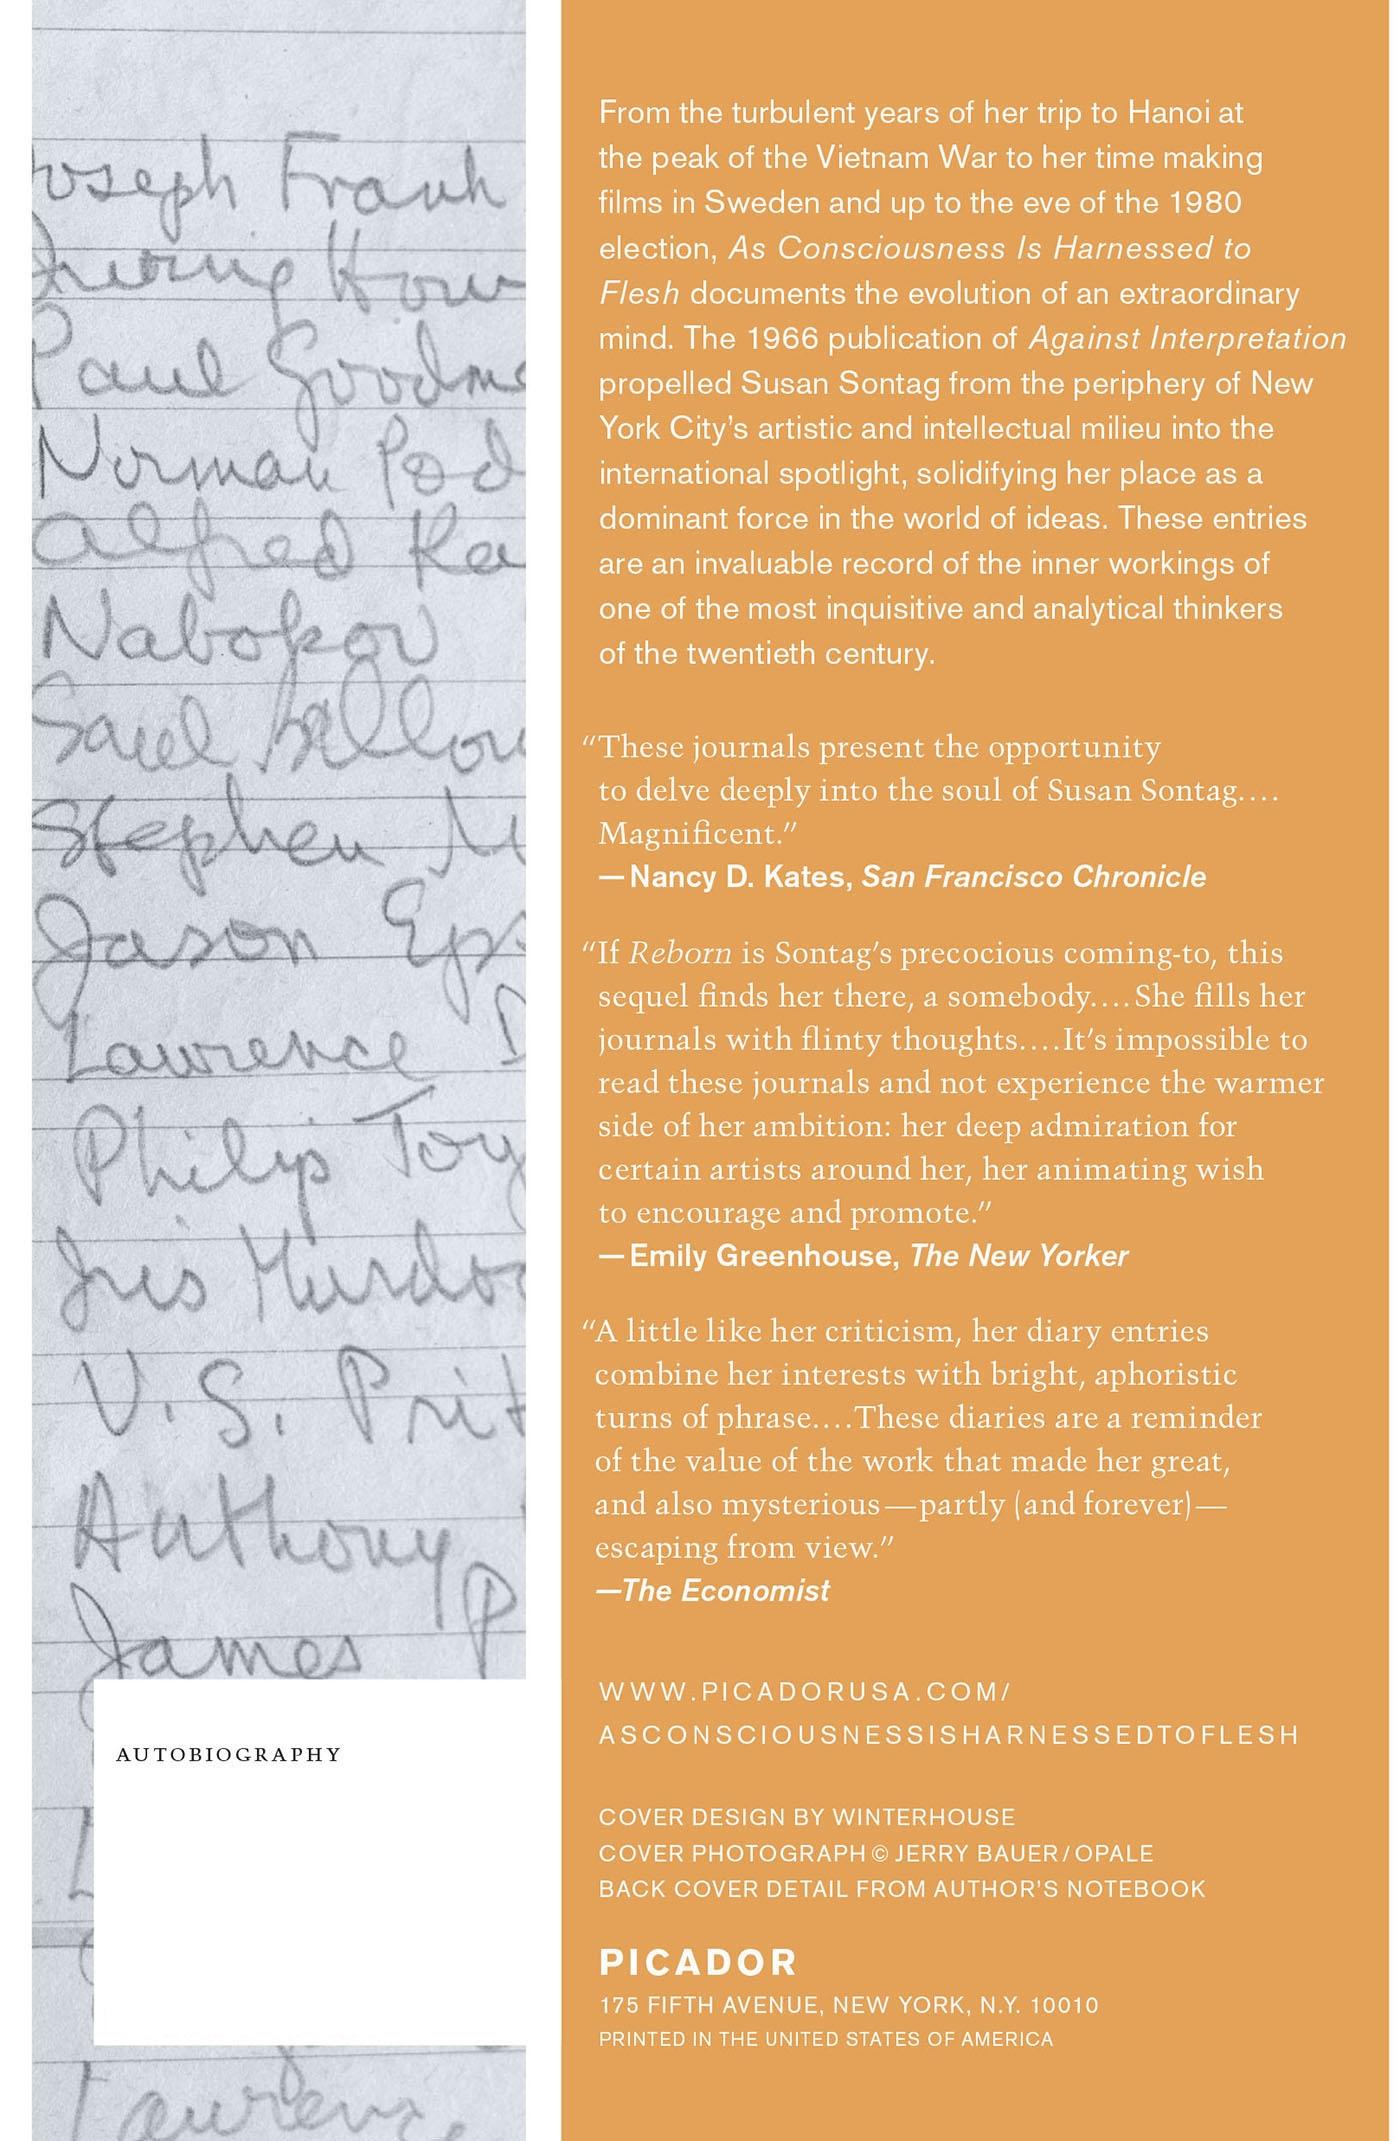 Joseph Frank
Irving How
Paul Goodma
Norman Pod
Alfred Ka
Nabokov
Saul Bellow
Stephen M
Jason Eps
Lawrence D
Philip Toy
Iris Murdoc
V. S. Prit
Anthony
James P
AUTOBIOGRAPHY
Lawrence
From the turbulent years of her trip to Hanoi at
the peak of the Vietnam War to her time making
films in Sweden and up to the eve of the 1980
election, As Consciousness Is Harnessed to
Flesh documents the evolution of an extraordinary
mind. The 1966 publication of Against Interpretation
propelled Susan Sontag from the periphery of New
York City’s artistic and intellectual milieu into the
international spotlight, solidifying her place as a
dominant force in the world of ideas. These entries
are an invaluable record of the inner workings of
one of the most inquisitive and analytical thinkers
of the twentieth century.
“These journals present the opportunity
to delve deeply into the soul of Susan Sontag....
Magnificent.”
—Nancy D. Kates, San Francisco Chronicle
“If Reborn is Sontag’s precocious coming-to, this
sequel finds her there, a somebody....She fills her
journals with flinty thoughts....It’s impossible to
read these journals and not experience the warmer
side of her ambition: her deep admiration for
certain artists around her, her animating wish
to encourage and promote.”
—Emily Greenhouse, The New Yorker
“A little like her criticism, her diary entries
combine her interests with bright, aphoristic
turns of phrase....These diaries are a reminder
of the value of the work that made her great,
and also mysterious—partly (and forever)—
escaping from view.”
—The Economist
WWW.PICADORUSA.COM/
ASCONSCIOUSNESSISHARNESSEDTOFLESH
COVER DESIGN BY WINTERHOUSE
COVER PHOTOGRAPH © JERRY BAUER/OPALE
BACK COVER DETAIL FROM AUTHOR’S NOTEBOOK
PICADOR
175 FIFTH AVENUE, NEW YORK, N.Y. 10010
PRINTED IN THE UNITED STATES OF AMERICA